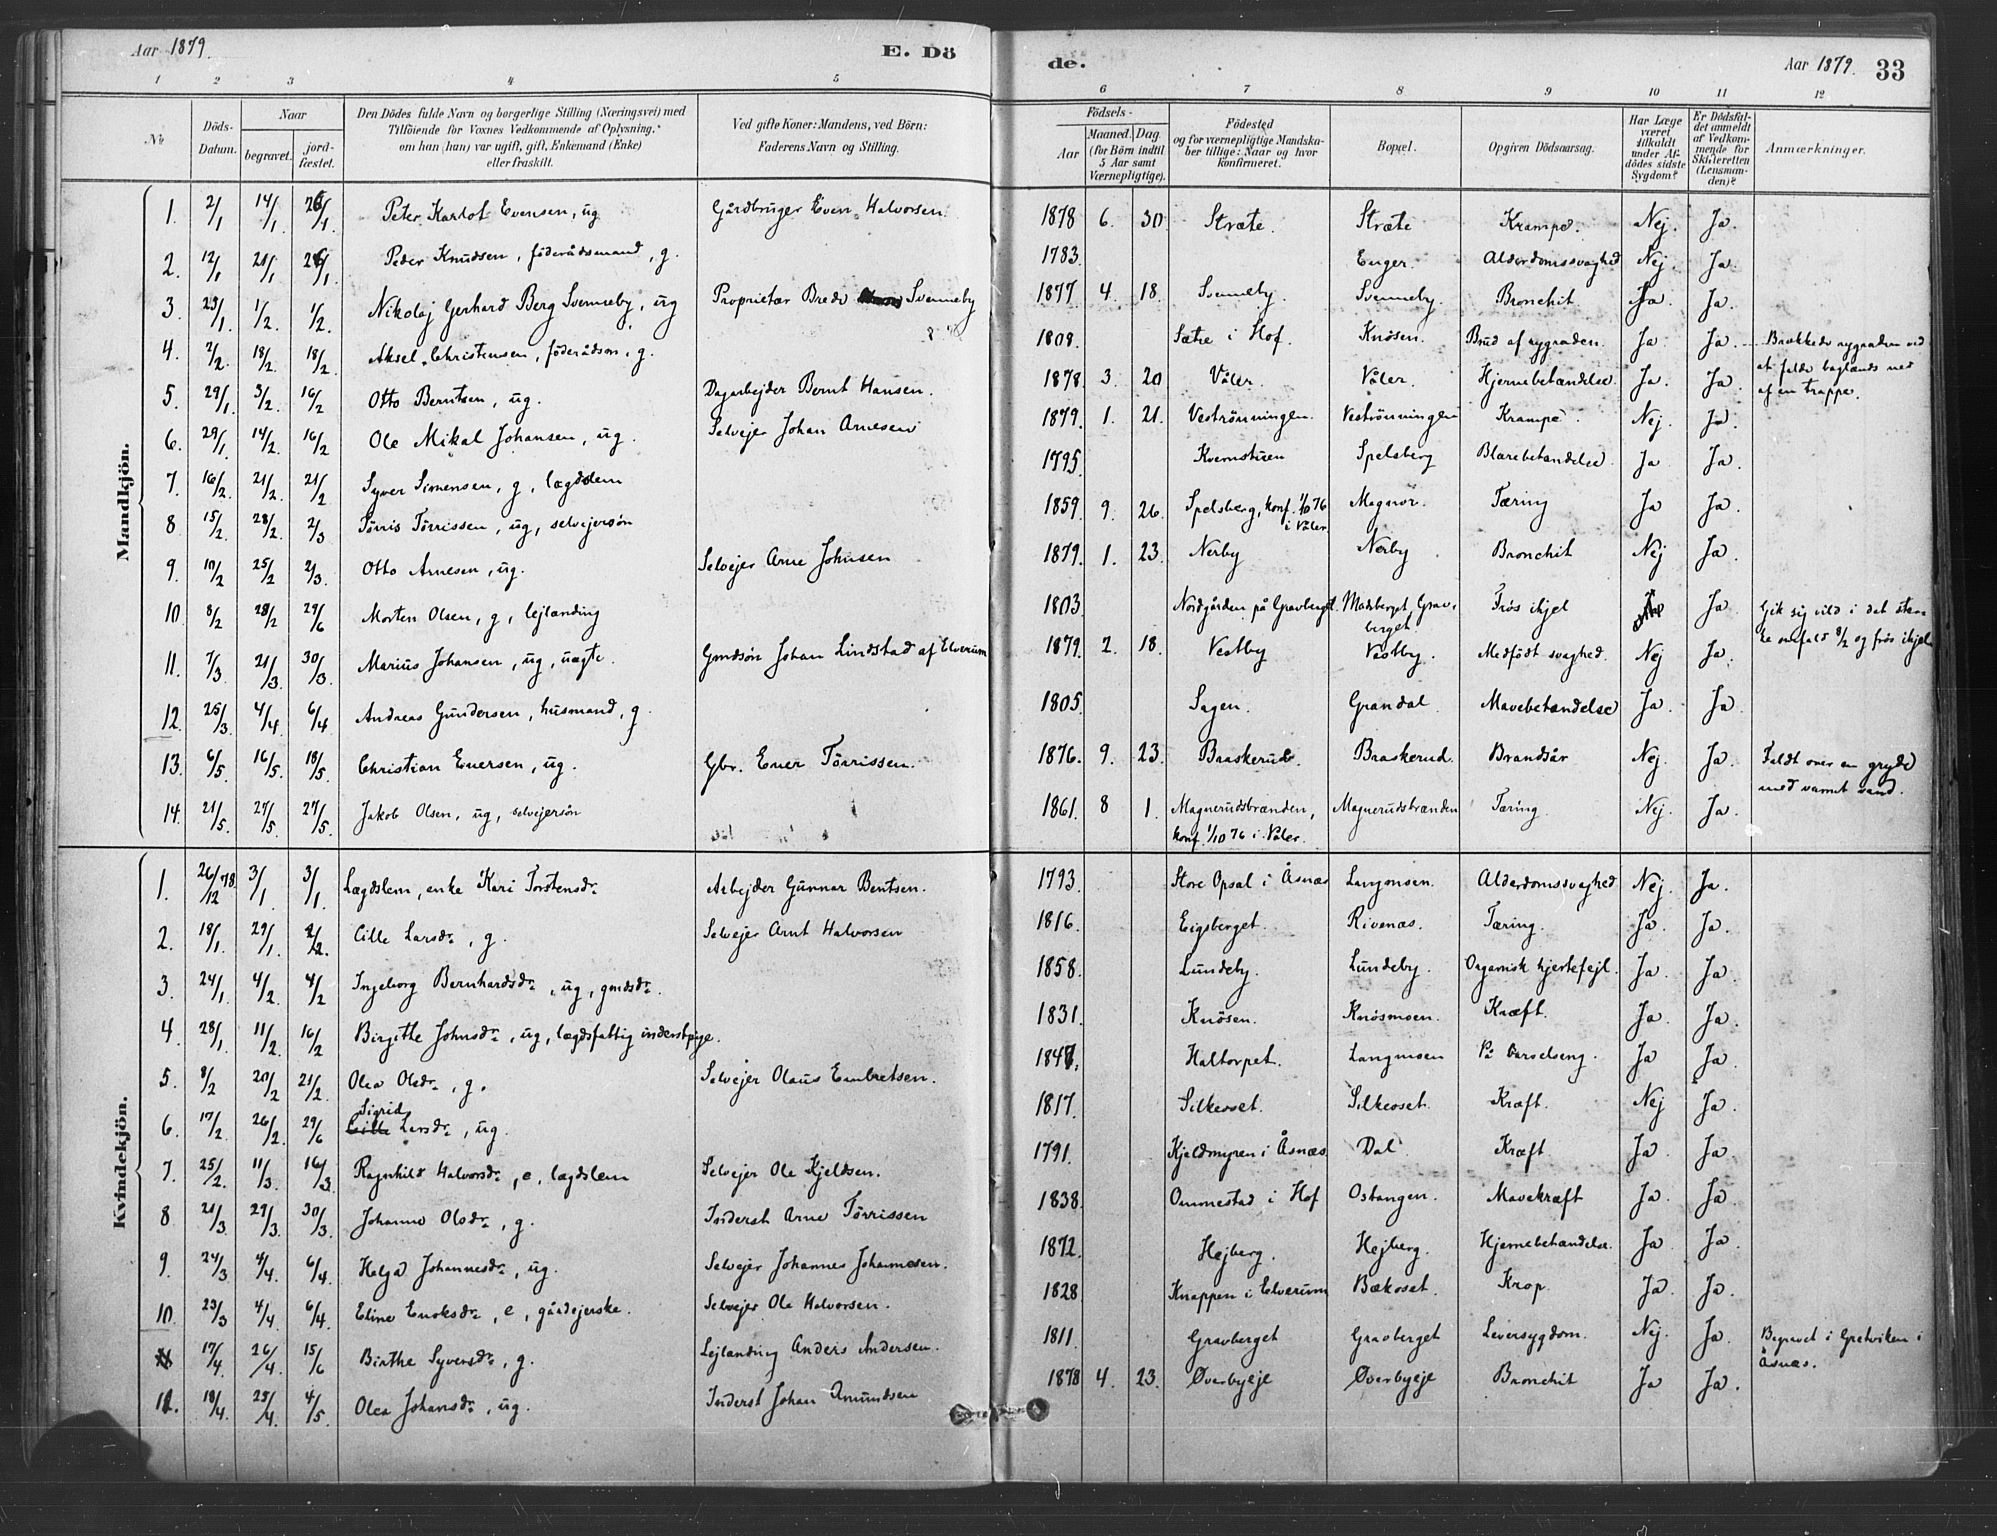 Aar 1879.
E. Dö
de.
Aar 1879.
33
1 2 3 4 5 6 7 8 9 10 11 12
No
Döds-Datum.
Naar
begravet.
jord-fæstet.
Den Dödes fulde Navn og borgerlige Stilling (Næringsvei) med
Tilföiende for Voxnes Vedkommende af Oplysning,
om han (hun) var ugift, gift, Enkemand (Enke)
eller fraskilt.
Ved gifte Koner: Mandens, ved Börn:
Faderens Navn og Stilling.
Födsels-
Aar
Maaned.
Dag.
(for Börn indtil
5 Aar samt
Værnepligtige).
Födested
og for værnepligtige Mandska-
ber tillige: Naar og hvor
konfirmeret.
Bopæl.
Opgiven Dödsaarsag.
Har Læge
været
tilkaldt
under Af-
dödes sidste
Sygdom?
Er Dödsfal-
det anmeldt
af Vedkom-
mende for
Skifteretten
(Lensman-
den)?
Anmærkninger.
Mandkjön.
1. 2/1 14/1 26/1 Peter Karlot Evensen, ug Gårdbruger Even Halvorsen. 1878 6. 30 Stræte. Stræte Krampe. Nej. Ja.
2. 12/1 21/1 26/1 Peder Knudsen, föderådsmand, g. 1783. Enger. Alderdomssvaghed Nej. Ja.
3. 23/1. 1/2. 1/2. Nikolaj Gerhard Berg Svenneby, ug Proprietær Brede Svenneby 1877 4. 18. Svenneby. Svenneby. Bronchit Ja. Ja.
4. 2/2. 18/2. 18/2. Aksel Christensen, föderådsm, g. 1808. Sætre i Hof. Knösen. Brud af rygraden. Ja Ja. Brækkede rygraden ved
at falde baglænds ned
af en trappe.
5. 29/1. 3/2. 16/2 Otto Berntsen, ug. Dagarbejder Bernt Hansen. 1878. 3. 20 Våler. Våler. Hjernebetændelse. Ja. Ja.
6. 29/1. 14/2. 16/2 Ole Mikal Johansen, ug. Selvejer Johan Arnesen 1879. 1. 21. Veströnningen. Veströnningen Krampe. Nej. Ja.
7. 16/2. 21/2. 21/2 Syver Simensen, g, lægdslem 1795. Kvernstuen Spelsberg Blærebetændelse. Ja Ja.
8 15/2. 28/2. 2/3 Törris Törrissen, ug, selvejersön 1859. 9. 26. Spelsberg, konf. 1/10 76
i Våler. Magnor. Tæring Ja Ja.
9. 10/2 25/2 2/3. Otto Arnesen, ug. Selvejer Arne Johnsen 1879. 1. 23. Nerby Nerby Bronchit Nej Ja.
10 8/2 28/2 29/6 Morten Olsen, g, lejlænding 1803. Nordgården på Gravberget. Madsberget, Grav-
berget. Frös ihjel Ja Gik sig vild i det ster-
ke snefald 8/2 og frös ihjel
11. 7/3. 21/3. 30/3. Marius Johansen, ug, uægte. Gmdsön Johan Lindstad af Elverum 1879. 2. 18. Vestby Vestby. Medfödt svaghed. Nej Ja.
12. 25/3. 4/4. 6/4 Andreas Gundersen, husmand, g. 1805. Sagen. Grandal. Mavebetændelse Ja. Ja.
13. 6/5. 16/5. 18/5. Christian Enersen, ug. Gbr. Ener Törrissen. 1876. 9. 23. Braskerud. Braskerud. Brandsår Nej. Ja. Faldt over en gryde
med varmt vand.
14. 21/5. 27/5. 27/5. Jakob Olsen, ug, selvejersön 1861. 8 1. Magnerudsbrænden,
konf. 1/10 76 i Våler. Magnerudsbrænden Tæring. Nej. Ja.
Kvindekjön.
1. 26/12 78. 3/1. 3/1. Lægdslem, enke Kari Torstensdr. Arbejder Gunnar Bentsen. 1793. Store Opsal i Åsnæs Langmoen. Alderdomssvaghed Nej. Ja.
2. 18/1. 29/1. 2/2. Cille Larsdr., g. Selvejer Arnt Halvorsen 1816. Eigsberget. Rivenæs. Tæring. Ja. Ja.
3. 24/1. 4/2. 4/2 Ingeborg Bernhardsdr., ug, gmdsdr. 1858. Lundeby. Lundeby. Organisk hjertefejl. Ja. Ja.
4 28/1. 11/2. 16/2 Birgithe Johnsdr., ug, lægdsfattig inderstpige. 1831. Knösen. Knösmoen. Kræft. Ja. Ja.
5. 8/2 20/2 21/2. Olea Olsdr., g. Selvejer Olaus Embretsen. 1847. Haltorpet. Langmoen På barselseng. Ja Ja.
6. 17/2. 26/2. 29/6 Sigrid Larsdr., ug. 1817. Silkeoset. Silkeoset. Kræft. Nej Ja.
7. 25/2. 11/3. 16/3. Ragnhild Halvorsdr., e. lægdslem Selvejer Ole Kjeldsen. 1791. Kjeldmyren i Åsnæs. Dal Kræft Ja. Ja.
8 21/3. 29/3. 30/3. Johanne Olsdr., g. Inderst Arne Törrissen 1838. Ommestad i Hof Ostangen. Mavekræft Ja. Ja.
9. 24/3 4/4. 6/4. Helga Johannesdr., ug. Selvejer Johannes Johannesen. 1872. Hejberg. Hejberg. Hjernebetændelse. Ja Ja.
10. 23/3 4/4. 6/4. Eline Enoksdr., e, gårdejerske. Selvejer Ole Halvorsen. 1828. Knappen i Elverum Bækoset. Krop. Ja. Ja.
11 17/4. 26/4. 15/6 Birthe Syversdr., g. Lejlænding Anders Andersen. 1811. Gravberget Gravberget Leversygdom. Nej. Ja. Begravet i Gretviken i
Åsnæs.
12. 18/4. 25/4. 4/5. Olea Johansdr., ug. Inderst Johan Amundsen 1878 4. 23. Øverbyeje Øverbyeje Bronchit Ja Ja.